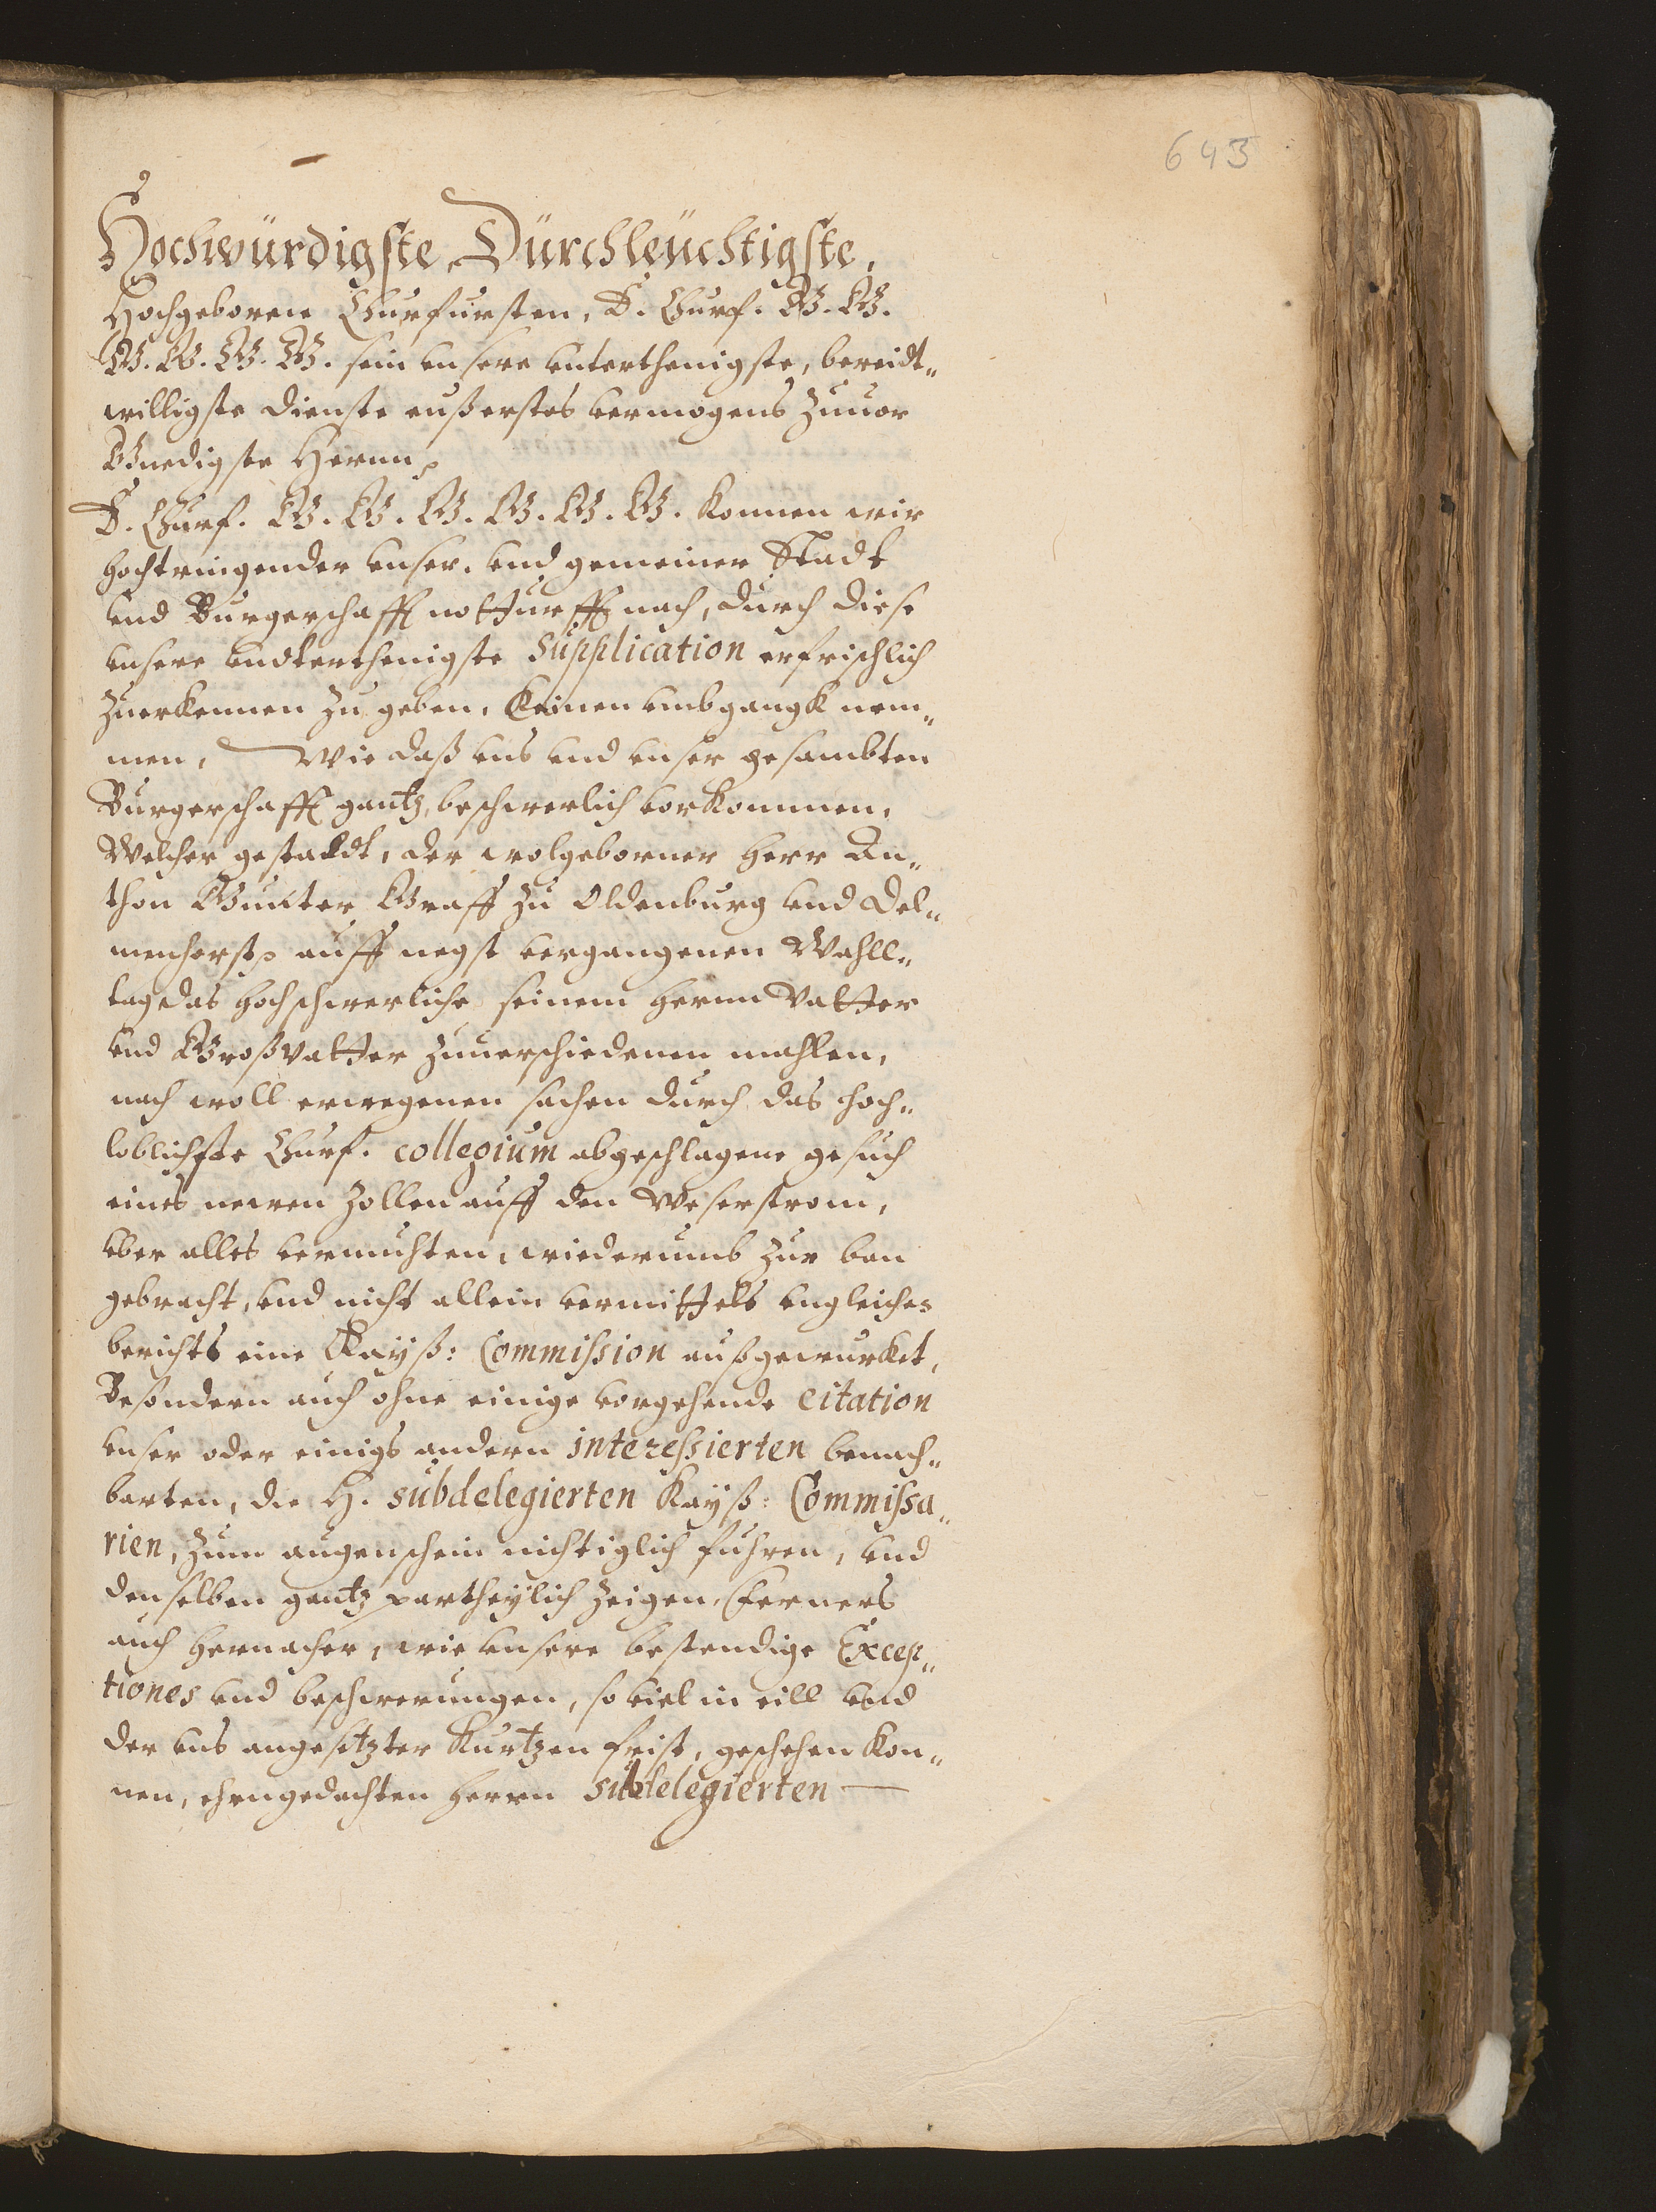 643
Hochwürdigste, Dürchleüchtigste,
Hochgeborne Churfursten, E. Churf. G. G.
G. G. G. G. sein vnsere vnterthenigste, bereidt„
willigste dienste eußerstes vermogens zuuor
Gnedigste Herrn,
E. Churf. G. G. G. G. G. G. konnen wir
hochtringender vnser. vnd gemeiner Stadt
vnd Burgerschafft notturfft nach, durch diese
vnsere vndterthenigste Supplication erfrischlich
zuerkennen zu geben, keinen vmbgangk nem„
men, Wie daß vns vnd vnser gesambten
Burgerschafft gantz beschwerlich vorkommen,
Welcher gestaldt, der wolgeborner Herr An„
thon Gunter Graff zu Oldenburg vnd Del„
menhorst auff negst vergangenen Wahll„
tage das hochschwerliche seinem Herrn Vatter
vnd Großvatter zuuerschiedenen mahlen,
nach woll erwegenen sachen durch das hoch„
loblichste Churf. collegium abgeschlagene gesuch
eines newen Zollen auff den Weserstrom,
vber alles vermuhten, wiederumb zur ban
gebracht, vnd nicht allein vermittels vngleiches
berichts eine Kayß: Commission außgewurket,
Besondern auch ohne einige vorgehende citation
vnser oder einigs andern interessierten benach„
barten, die H. subdelegierten Kayß: Commissa„
rien, zum augenschein nichtiglich fuhren, vnd
denselben gantz partheylich zeigen, Ferners
auch hernacher, wie vnsere bestendige Excep„
tiones vnd beschwerungen, so viel in eill vnd
der vns angesetzter kurtzen frist, geschehen kon„
nen, ehrngedachten Herrn subdelegierten